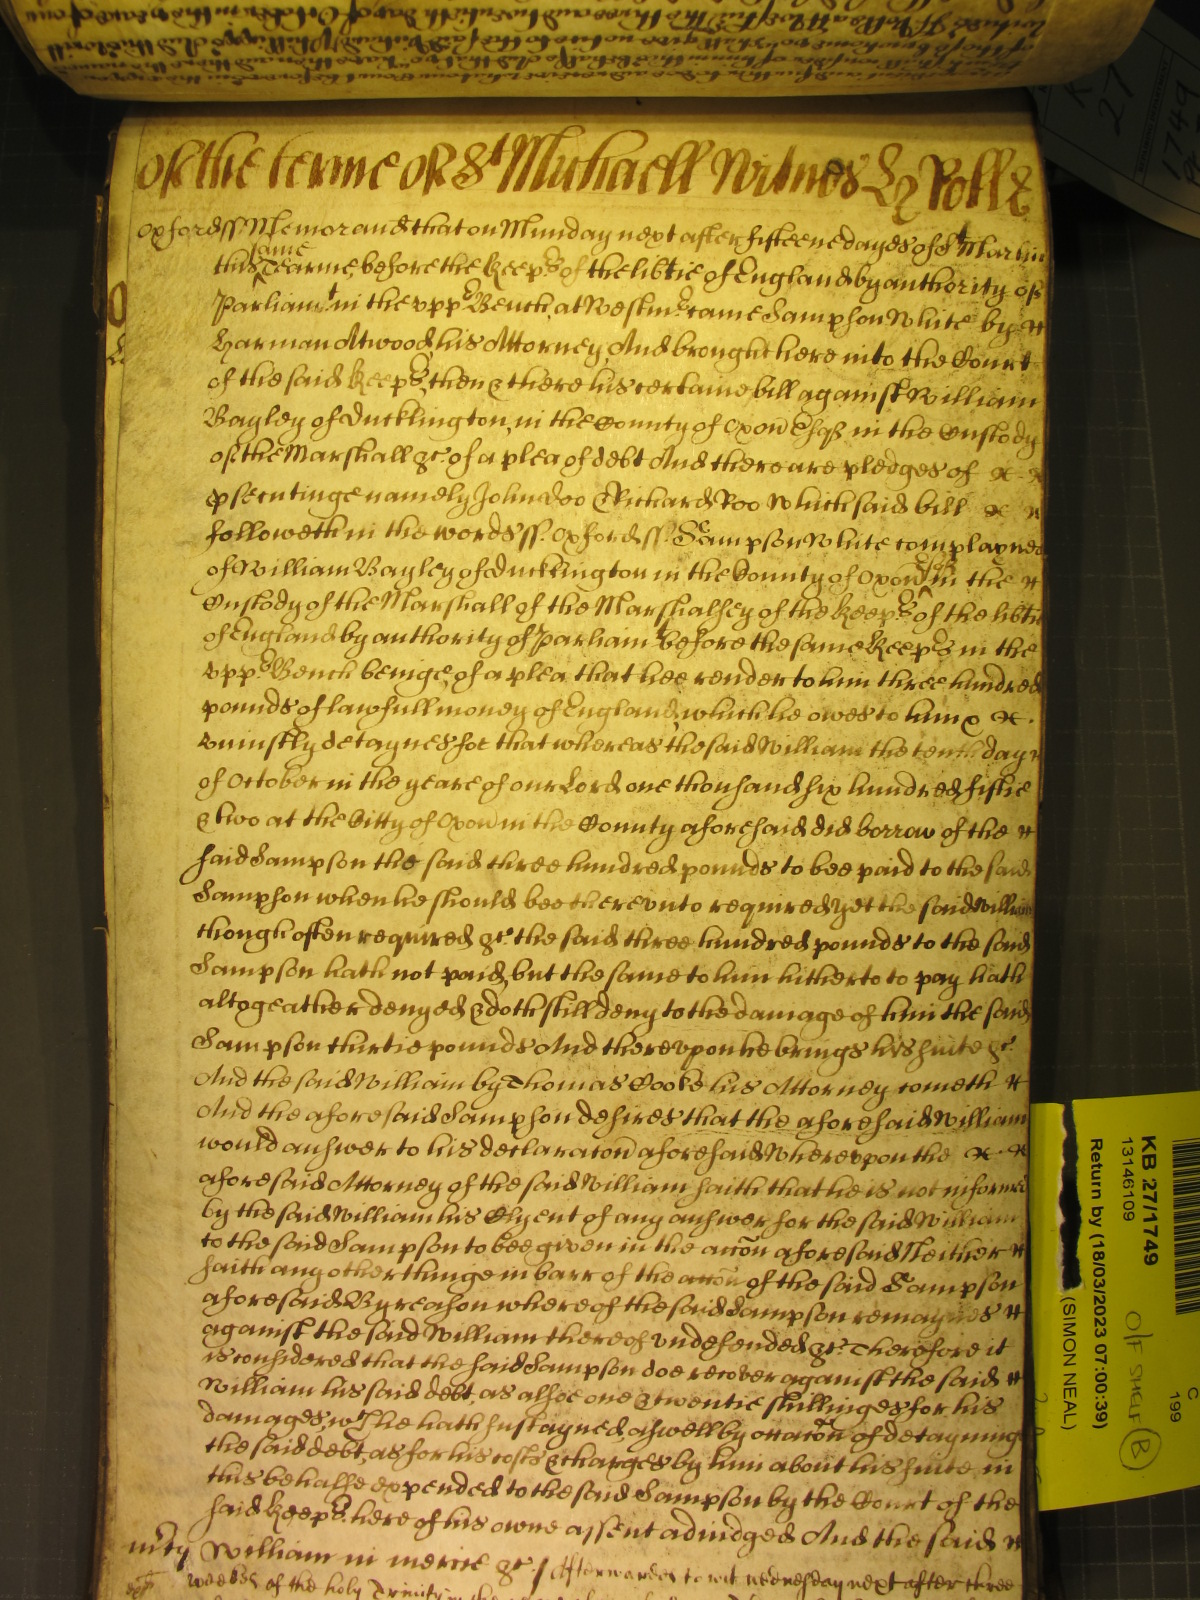 of the terme of St Michaell Witnes Hz Rolle
Oxford ss Memorand that on Munday next after fifteene dayes of St Martin
this same Tearme before the Keeprs of the libtie of England by authority of
Parliamt in the vppr Bench at Westmr came Sampson White by
Harman Atwood his Attorney And brought here into the Court
of the said Keeprs then & there his certaine bill against William
Bayley of Ducklington in the County of Oxon Esqr in the Custody
of the Marshall &c of a plea of debt And there are pledges of
psecutinge namely John Doo & Richard Roo Which said bill
followeth in the words ss Oxford ss Sampson White complaynes
of William Bayley of Ducklington in the County of Oxon Esqr in the
Custody of the Marshall of the Marshalsey of the Keeprs of the libtie
of England by authority of Parliamt before the same Keeprs in the
vppr Bench beinge of a plea that hee render to him three hundred
pounds of lawfull money of England which he owes to him &
vniustly detaynes for that whereas the said William the tenth day
of October in the yeare of our Lord one thousand six hundred fiftie
& two at the Citty of Oxon in the County aforesaid did borrow of the
said Sampson the said three hundred pounds to bee paid to the said
Sampson when he should bee therevnto required yet the said William
though often required &c the said three hundred pounds to the said
Sampson hath not paid but the same to him hitherto to pay hath
altogeather denyed & doth still deny to the damage of him the said
Sampson thirtie pounds And therevpon he brings his suite &c
And the said William by Thomas Cooke his Attorney cometh
And the aforesaid Sampson desires that the aforesaid William
would answer to his declaracon aforesaid Wherevpon the
aforesaid Attorney of the said William saith that he is not informed
by the said William his Clyent of any answer for the said William
to the said Sampson to bee given in the accon aforesaid Neither
saith any other thinge in barr of the accon of the said Sampson
aforesaid By reason whereof the said Sampson remaynes
against the said William thereof vndefended &c Therefore it
is considered that the said Sampson doe recover against the said
William his said debt as alsoe one & twentie shillinges for his
damages wch he hath sustayned aswell by occacon of detayning
the said debt as for his costs & charges by him about his suite in
this behalfe expended to the said Sampson by the Court of the
said Keeprs here of his owne assent adiudged And the said
mcy William in mercie &c / Afterwardes to wit wednesday next after three
weekes of the holy Trinity in the
KB 27/1749
13146109
Return by (18/03/2023 07:00:39)
(SIMON NEAL)
O/F SHELF B
C
199
27
1749